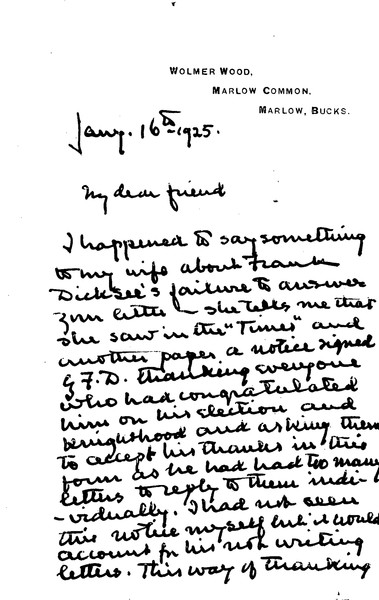 WOLMER WOOD,
MARLOW COMMON.
MARLOW, BUCKS.
Jany. 16th 1925.
My dear friend
I happened to say something
to my wife about Frank
Dicksee's failure to answer
your letter – she tells me that
she saw in the "Times" and
another paper a notice signed
by F.D. thanking everyone
who had congratulated
him on his election and
knighthood and asking them
to accept his thanks in this
form as he had had too many
letters to reply to them indi-
-vidually. I had not seen
this notice myself but it would
account for his not writing
letters. This way of thanking